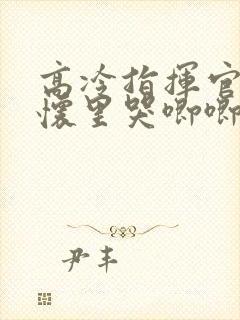 高冷指揮官
懷里哭唧唧
尹丰